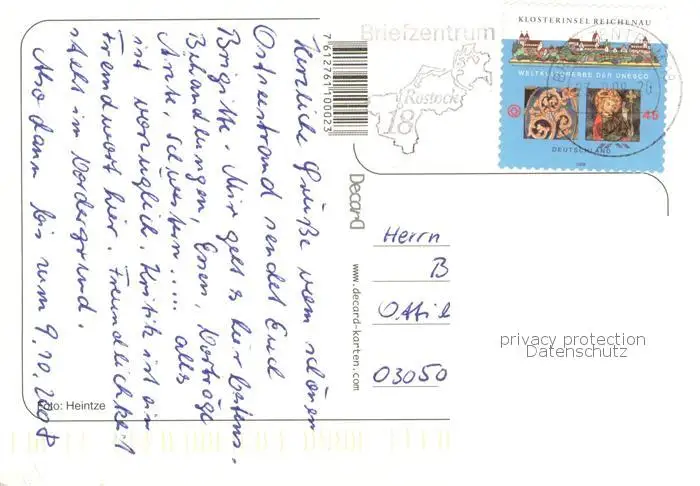 Herzliche Grüße vom schönen
Ostseestrand sendet Euch
Brigitte. Mir geht's hier bestens.
Behandlungen, Essen, Vorträge
Ärzte, Schwestern..... alles
ist vorzüglich. Kritik ist ein
Fremdwort hier. Freundlichkeit
steht im Vordergrund.
Also dann bis zum 9.10.2008
Foto: Heintze
7612761100023
Decard
www.decard-karten.com
Briefzentrum
Rostock
18
KLOSTERINSEL REICHENAU
WELTKULTURERBE DER UNESCO
45
DEUTSCHLAND
2008
Herrn
B
Ottil
03050
privacy protection
Datenschutz